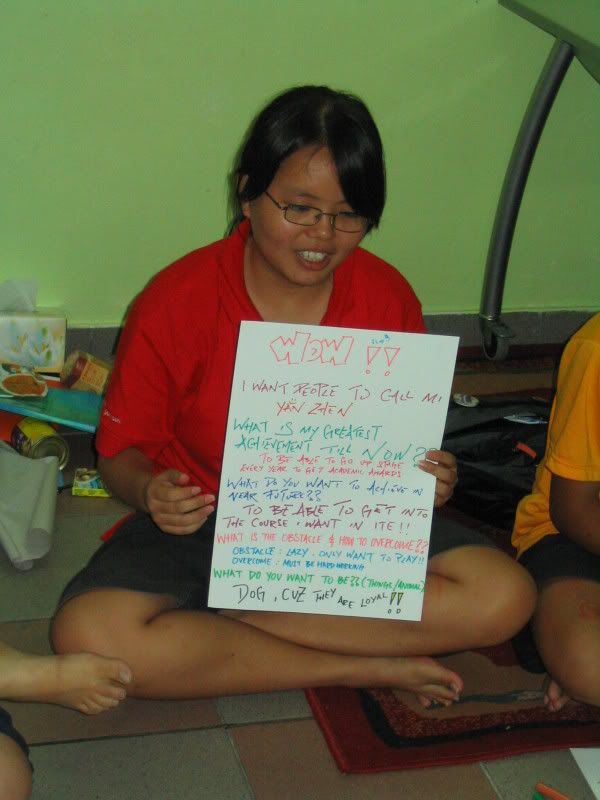 WOW !!
I WANT PEOPLE TO CALL MI
YAN ZHEN
WHAT IS MY GREATEST
ACHIEVEMENT TILL NOW??
TO BE ABLE TO GO UP STAGE
EVERY YEAR TO GET ACADEMIC AWARDS
WHAT DO YOU WANT TO ACHIEVE IN
NEAR FUTURE??
TO BE ABLE TO GET INTO
THE COURSE I WANT IN ITE!!
WHAT IS THE OBSTACLE & HOW TO OVERCOME??
OBSTACLE : LAZY . ONLY WANT TO PLAY!!
OVERCOME : MUST BE HARDWORKING
WHAT DO YOU WANT TO BE?? (THINGS/ANIMAL)
DOG , CUZ THEY ARE LOYAL !!